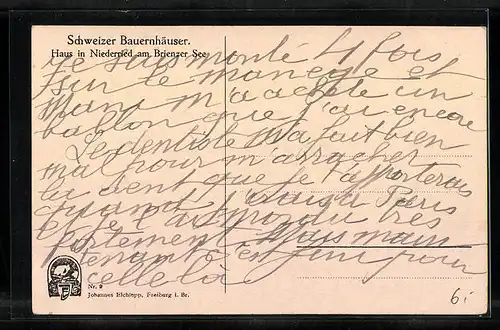 Schweizer Bauernhäuser.
Haus in Niederried am Brienzer See
Je suis monté 4 fois
sur le manège et
Mans m'a acheté un
ballon que j'ai encore
Le dentiste m'a fait bien
mal pour m'arracher
la dent que je t'apporterais
quand à Paris
elle très
fortement Mais main
tenant c'est fini pour
celle là
Nr. 9
Johannes Elchlepp, Freiburg i. Br.
6i